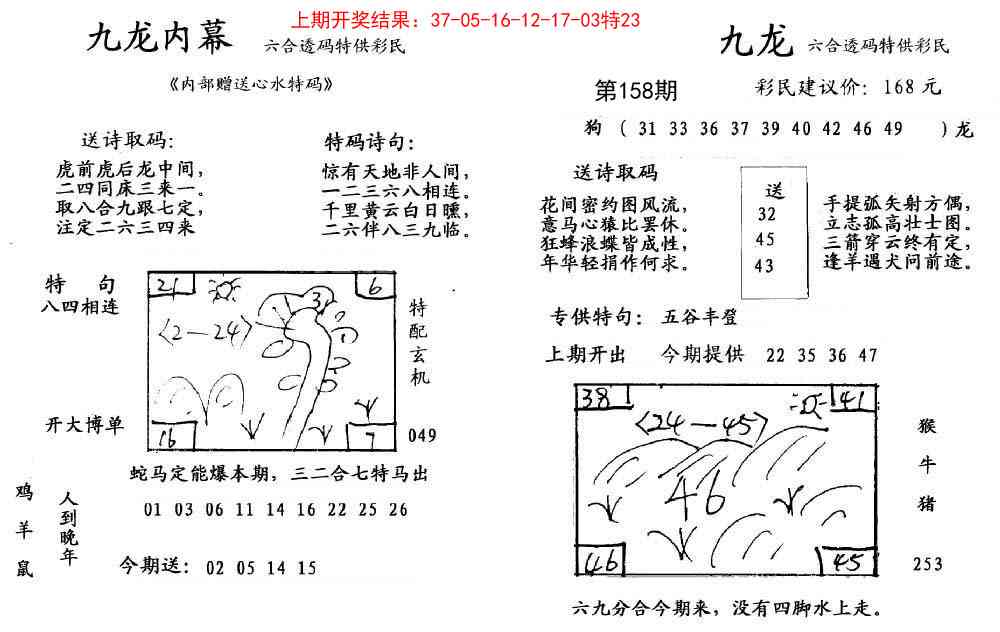 上期开奖结果：37-05-16-12-17-03特23
九龙内幕 六合透码特供彩民
《内部赠送心水特码》
送诗取码：
虎前虎后龙中间，
二四同床三来一。
取八合九跟七定，
注定二六三四来
特码诗句：
惊有天地非人间，
一二三六八相连。
千里黄云白日曛，
二六伴八三九临。
特 句
八四相连
开大博单
21
6
3
<2—24>
16
7
特配玄机
049
蛇马定能爆本期，三二合七特马出
鸡羊鼠
人到晚年
01 03 06 11 14 16 22 25 26
今期送：02 05 14 15
九龙 六合透码特供彩民
第158期 彩民建议价：168元
狗（31 33 36 37 39 40 42 46 49 ）龙
送诗取码
花间密约图风流，
意马心猿比罢休。
狂蜂浪蝶皆成性，
年华轻捐作何求。
送
32
45
43
手提弧矢射方偶，
立志孤高壮士图。
三箭穿云终有定，
逢羊遇犬问前途。
专供特句：五谷丰登
上期开出 今期提供 22 35 36 47
38
41
<24—45>
46
46
45
猴
牛
猪
253
六九分合今期来，没有四脚水上走。